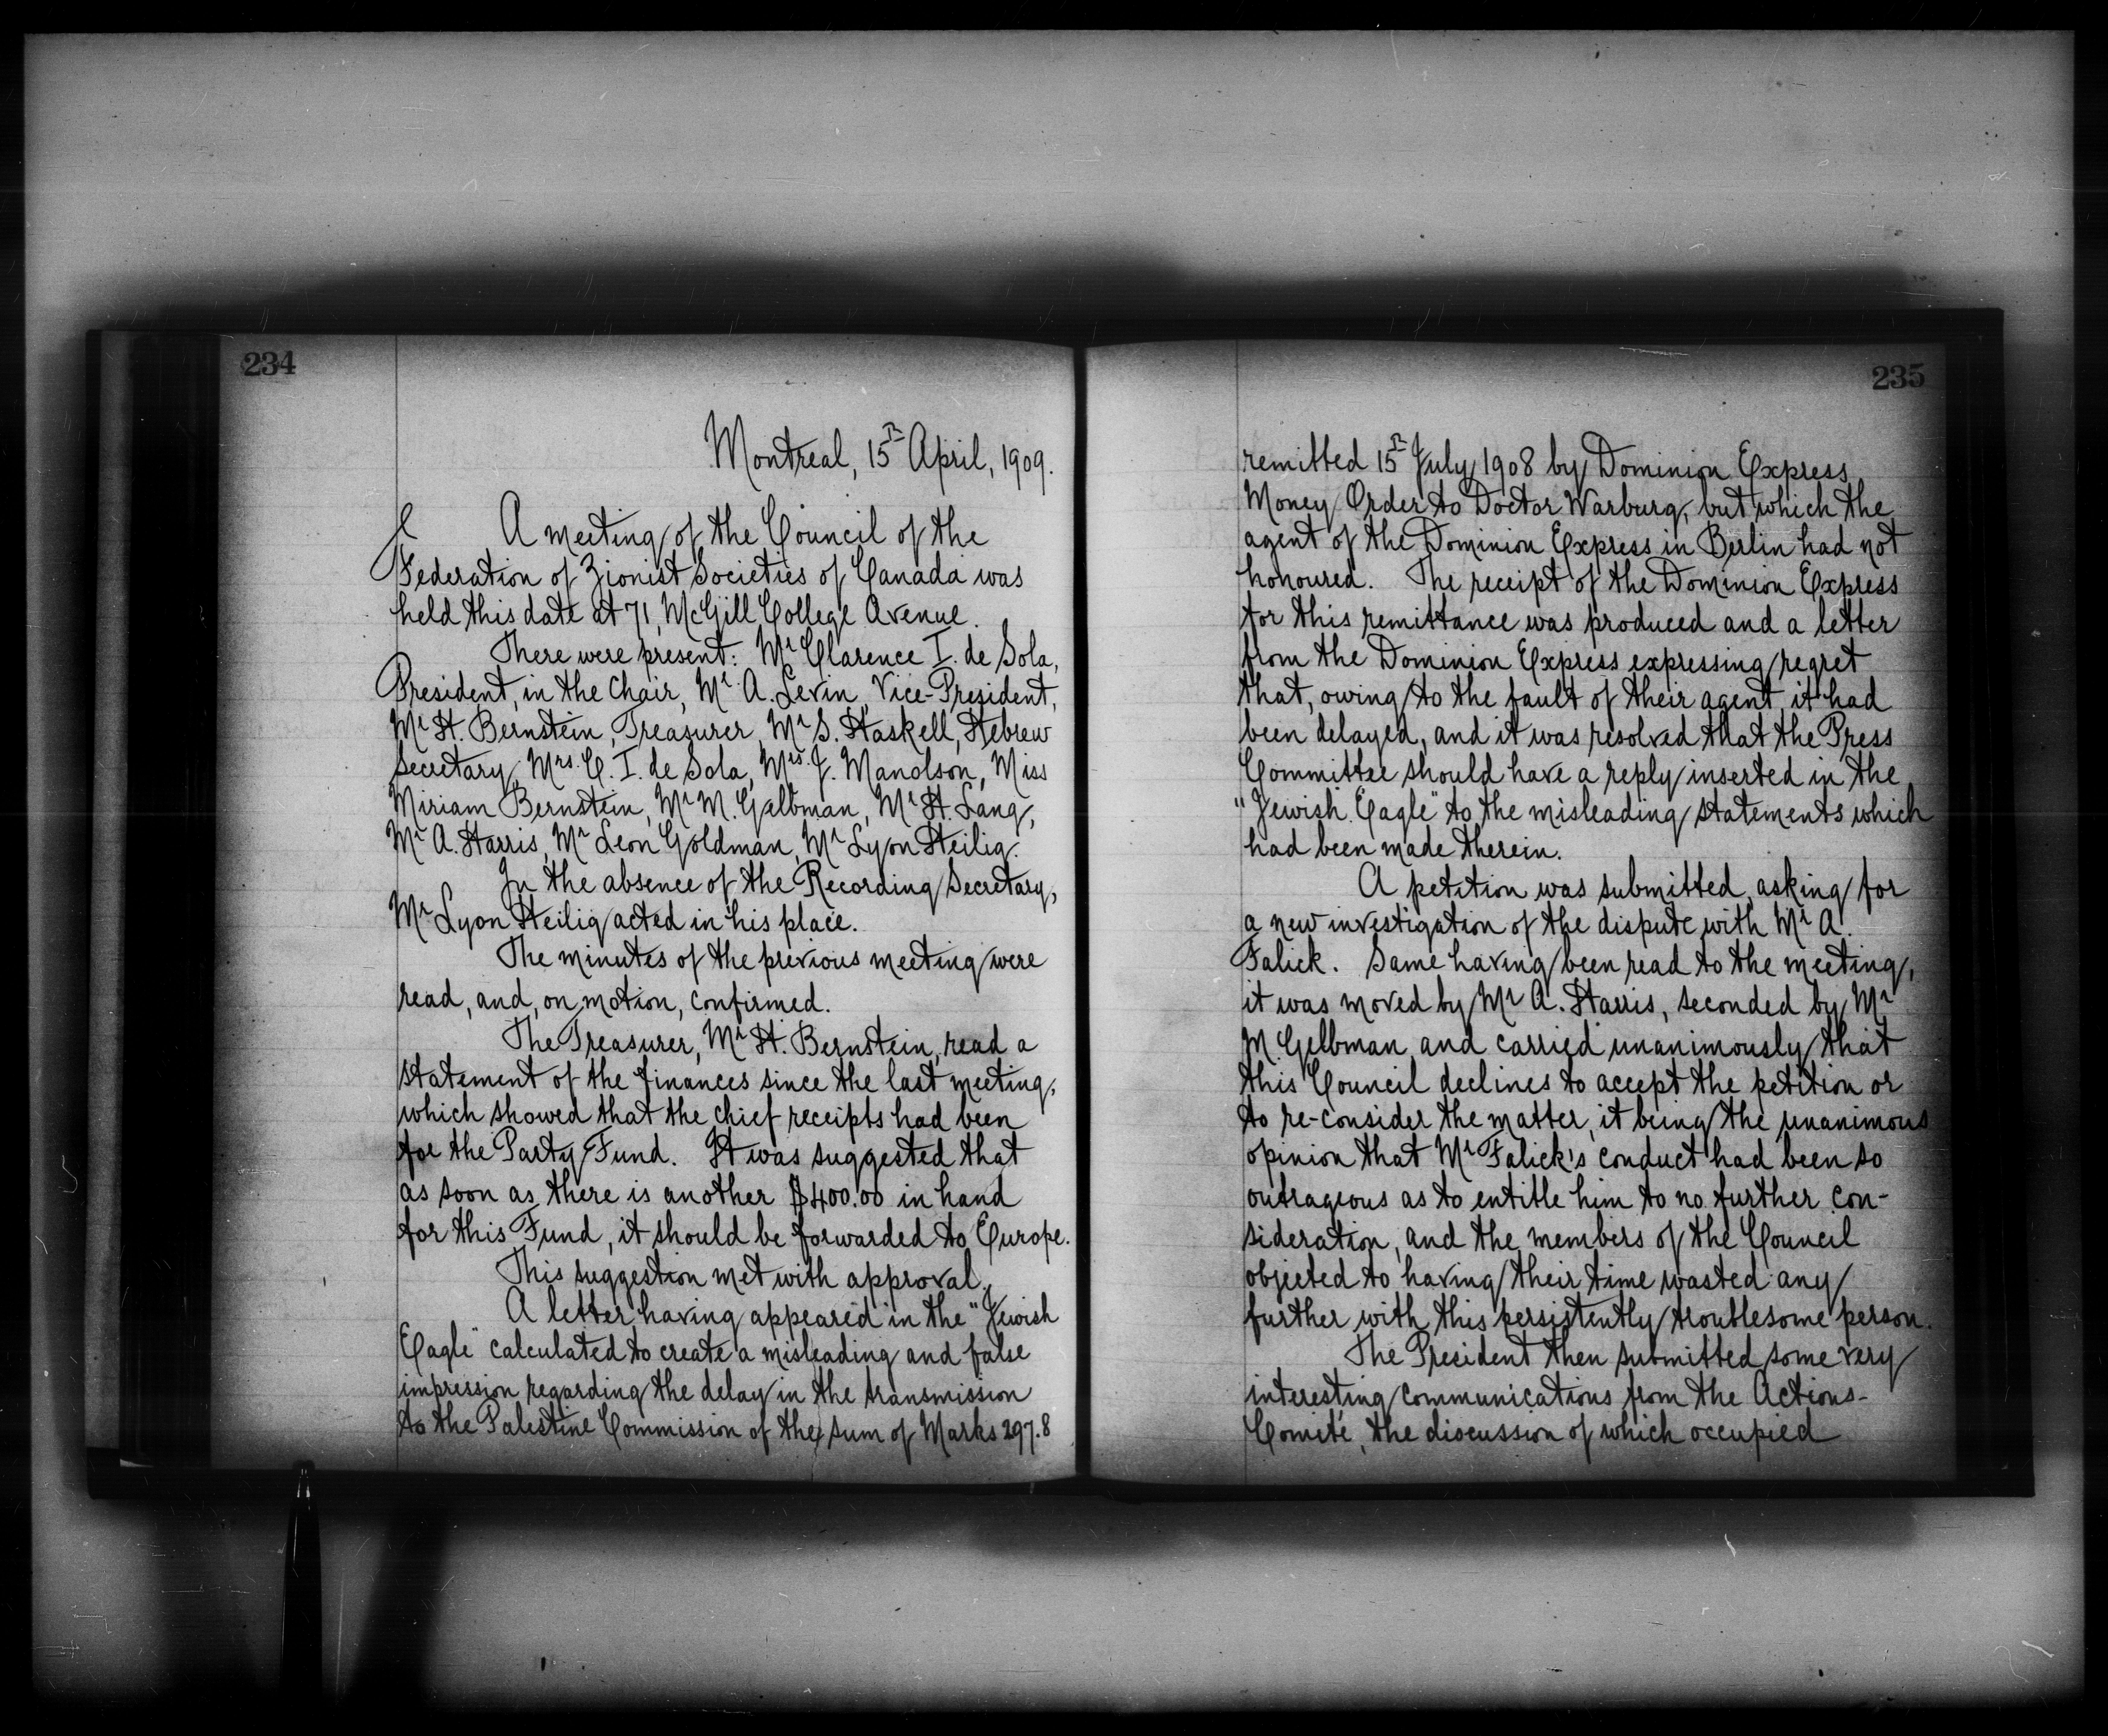 234
Montreal, 15th April, 1909.
A meeting of the Council of the
Federation of Zionist Societies of Canada was
held this date at 71, McGill College Avenue.
There were present: Mr Clarence I. de Sola,
President, in the Chair, Mr A. Levin, Vice-President,
Mr H. Bernstein, Treasurer, Mr S. Haskell, Hebrew
Secretary, Mrs. C. I. de Sola, Mrs. J. Manolson, Miss
Miriam Bernstein, Mr M. Gelbman, Mr H. Lang,
Mr A. Harris, Mr Leon Goldman, Mr Lyon Heilig.
In the absence of the Recording Secretary,
Mr Lyon Heilig acted in his place.
The minutes of the previous meeting were
read, and, on motion, confirmed.
The Treasurer, Mr H. Bernstein, read a
statement of the finances since the last meeting,
which showed that the chief receipts had been
for the Party Fund. It was suggested that
as soon as there is another $400.00 in hand
for this Fund, it should be forwarded to Europe.
This suggestion met with approval.
A letter having appeared in the "Jewish
Eagle" calculated to create a misleading and false
impression regarding the delay in the transmission
to the Palestine Commission of the sum of Marks 297.8
235
remitted 15th July 1908 by Dominion Express
Money Order to Doctor Warburg, but which the
agent of the Dominion Express in Berlin had not
honoured. The receipt of the Dominion Express
for this remittance was produced and a letter
from the Dominion Express expressing regret
that, owing to the fault of their agent, it had
been delayed, and it was resolved that the Press
Committee should have a reply inserted in the
"Jewish Eagle" to the misleading statements which
had been made therein.
A petition was submitted, asking for
a new investigation of the dispute with Mr A.
Falick. Same having been read to the meeting,
it was moved by Mr A. Harris, seconded by Mr
M. Gelbman and carried unanimously that
this Council declines to accept the petition or
to re-consider the matter, it being the unanimous
opinion that Mr Falick's conduct had been so
outrageous as to entitle him to no further con-
sideration, and the members of the Council
objected to having their time wasted any
further with this persistently troublesome person.
The President then submitted some very
interesting communications from the Actions-
Comité, the discussion of which occupied